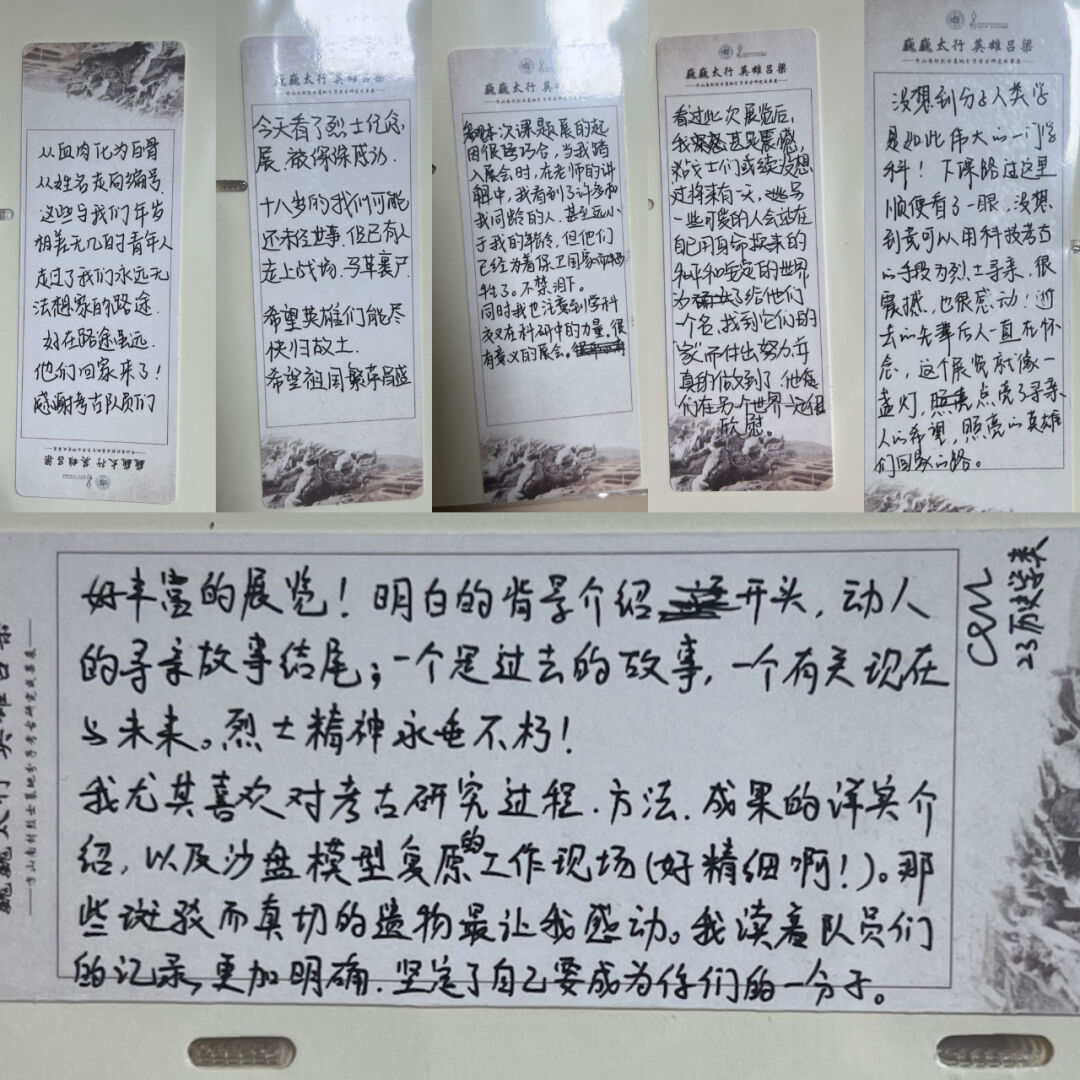 从血肉化为白骨
从姓名走向编号
这些与我们年岁
相差无几的青年人
走过了我们永远无
法想象的路途.
好在路途虽远.
他们回家来了!
感谢考古队员们
巍巍太行 英雄吕梁
巍巍太行 英雄吕梁
今天看了烈士纪念
展.被深深感动.
十八岁的我们可能
还未经世事.但已有人
走上战场.马革裹尸.
希望英雄们能尽
快归故土.
希望祖国繁荣昌盛
巍巍太行 英雄吕梁
本次课题展的起
因很巧合,当我踏
入展会时,在老师的讲
解中,我看到了许多和
我同龄的人,甚至远小
于我的年龄,但他们
已经为着保卫国家而牺
牲了。不禁泪下。
同时我也注意到学科
交叉在科研中的力量。很
有意义的展会。
巍巍太行 英雄吕梁
看过此次展览后,
我深感甚是震撼,
战士们或续没想
过将来有一天,
一些可爱的人会站在
自己用身命换来的
和平和安定的世界
为了给他们
一个名,找到它们的
“家”而付出努力并
真的做到了,他
们在另一个世界一定很
欣慰。
巍巍太行 英雄吕梁
没想到分子人类学
是如此伟大的一门学
科!下课路过这里
顺便看了一眼,没想
到竟可以用科技考古
的手段为烈士寻亲,很
震撼,也很感动!逝
去的先辈后人一直在怀
念,这个展览就像一
盏灯,照亮点亮了寻亲
人的希望,照亮的英雄
们回家的路。
好丰富的展览!明白的背景介绍开头,动人
的寻亲故事结尾;一个是过去的故事,一个有关现在
与未来。烈士精神永垂不朽!
我尤其喜欢对考古研究过程.方法.成果的详实介
绍,以及沙盘模型复原的工作现场(好精细啊!)。那
些斑驳而真切的遗物最让我感动。我读着队员们
的记录,更加明确.坚定了自己要成为你们的一分子。
23历史学类